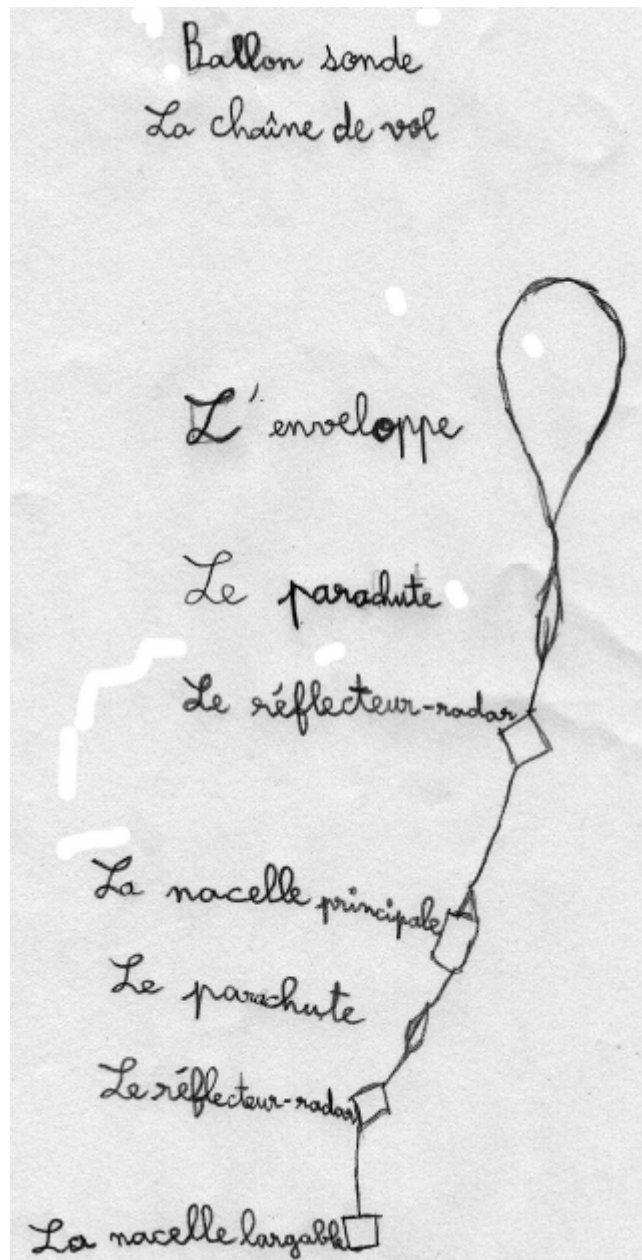 Ballon sonde
La chaîne de vol
L'enveloppe
Le parachute
Le réflecteur-radar
La nacelle principale
Le parachute
Le réflecteur-radar
La nacelle largable